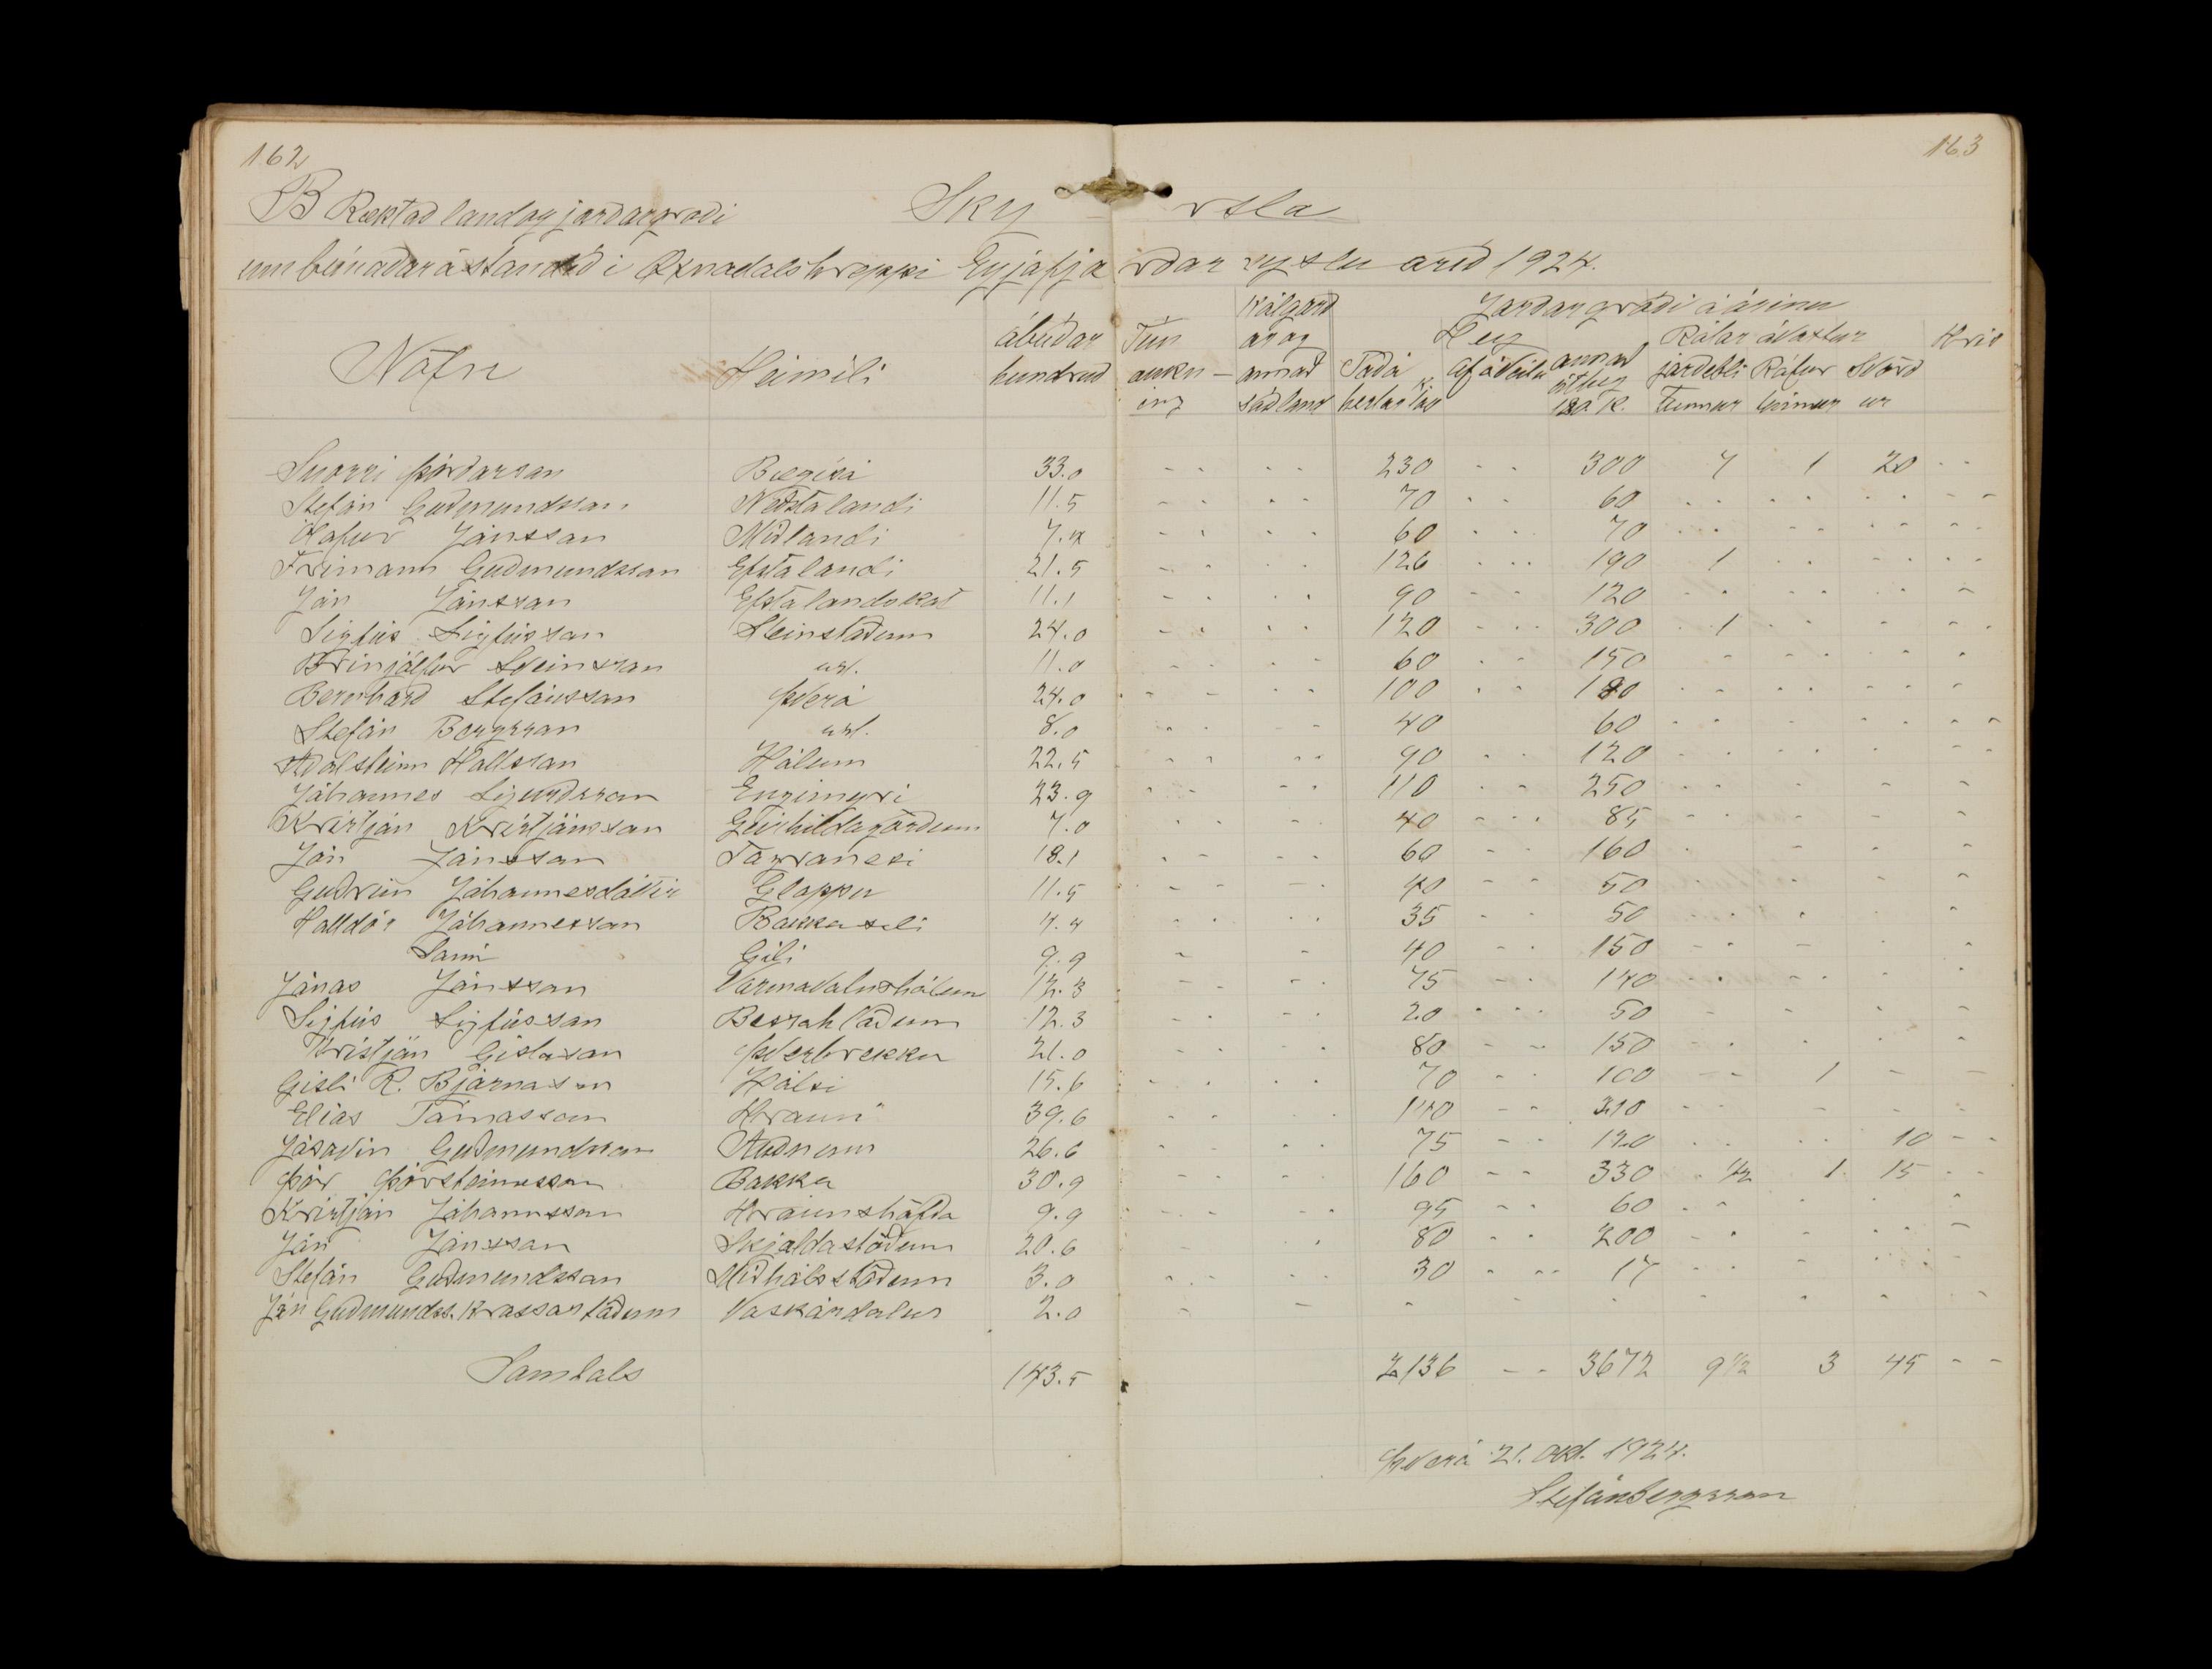 162 163
B Ræktað land og jarðargróði Sky rsla
um búnaðarástandið i Öxnadalshreppi Eyjafja rðarsyslu árið 1924.
Kálgarð Jarðargróði á árinu
ábúðar Tún ar og Hey Rótar ávöxtur Hrís
Nöfn Heimili hundruð auku – annað Taða af áveitu annað jarðepli Rófur Svörð
ing sáðland hestar 120 K. Tunnur tunnur ur
Snorri Þórðarson Bægisá 33.0 - - - - 230 - - 300 7 1 20 - -
Stefán Guðmundsson Neðstalandi 11.5 - - - - 70 - - 60 - - - - - - - -
Ólafur Jónsson Miðlandi 7.4 - - - - 60 - - 70 - - - - - - - -
Frímann Guðmundsson Efstalandi 21.5 - - - - 126 - - 190 1 - - - - - -
Jón Jónsson Efstalandskot 11.1 - - - - 90 - - 120 - - - - - - -
Sigfús Sigfússon Steinstöðum 24.0 - - - - 120 - - 300 1 - - - - -
Brinjólfur Sveinsson usl. 11.0 - - - - 60 - - 150 - - - - - -
Bernharð Stefánsson Þverá 24.0 - - - - 100 - - 180 - - - - - - -
Stefán Bergsson usl. 8.0 - - - - 40 60 - - - - - - -
Aðalsteinn Hallsson Hólum 22.5 - - - - 90 - - 120 - - - - - - -
Jóhannes Sigurdsson Engimyri 23.9 - - - - 110 - - 250 - - - - - -
Kristján Kristjánsson Geirhildagörðum 7.0 - - - - 40 - - 85 - - - - -
Jón Jónsson Fagranesi 18.1 - - - - 60 - - 160 - - - -
Guðrún Jóhannesdóttir Gloppu 11.5 - - - - 40 - - 50 - - - - -
Halldór Jóhannesson Bakkaseli 4.4 - - - - 35 - - 50 - - - - -
Sami Gili 9.9 - - 40 - - 150 - - - - -
Jónas Jónsson Varmavatnshólum 12.3 - - - - 75 - - 140 - - - - - -
Sigfús Sigfússon Bessahlöðum 12.3 - - - - 20 - - 50 - - - -
Kristján Gislason Þverbrekku 21.0 - - - - 80 - - 150 - - - - -
Gisli R. Bjarnason Hólsi 15.6 - - - - 70 - - 100 - - 1 - -
Elías Tómasson Hrauni 39.6 - - - - 140 - - 210 - - - - -
Jósavin Guðmundsson Auðnum 26.6 - - - - 75 - - 120 - - - - 10 - -
Þór Þórsteinsson Bakka 30.9 - - - - 160 - - 330 ½ 1 15 - -
Kristján Jóhannsson Hraunshöfða 9.9 - - - - 95 - - 60 - - - - -
Jón Jónsson Skjaldastöðum 20.6 - - - 80 - - 200 - - - - - -
Stefán Guðmundsson Miðhálsstöðum 3.0 - - - - 30 - - 17 - - - - -
Jón Guðmundss. Krossastöðum Vaskárdalur 2.0 - - - - - - - - -
Samtals 143.5 2136 - - 3672 9½ 3 45 - -
Þverá 21. okt. 1924.
Stefán Bergsson